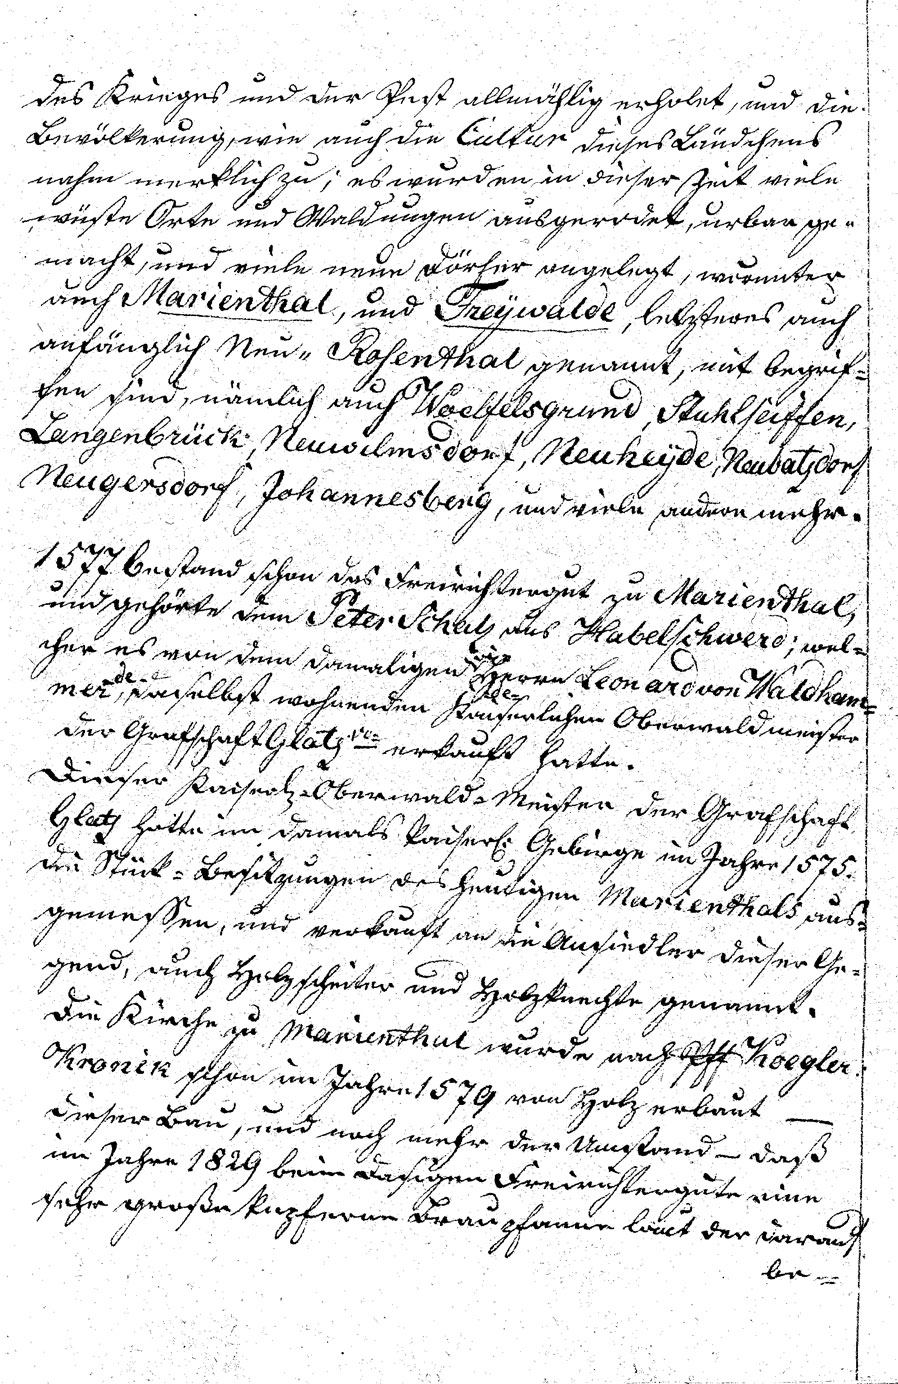 des Krieges und der Pest allmählig erholet, und die
Bevölkerung, wie auch die Cultur dieses Ländchens
nahm merklich zu; es wurden in dieser Zeit viele
wüste Orte und Waldungen ausgerodet, urbar ge-
macht, und viele neue Dörfer angelegt, worunter
auch Marienthal, und Freÿwalde, letzteres auch
anfänglich Neu- Rosenthal genannt, mit begrif-
fen sind, nämlich auch Woelfelsgrund, Stuhlseiffen,
Langenbrück, Neuwilmsdorf, Neuheÿde, Neubatzdorf
Neugersdorf, Johannesberg, und viele andere mehr.
1577 bestand schon das Freirichtergut zu Marienthal,
und gehörte dem Peter Schatz aus Habelschwerd; wel-
cher es von dem damaligen Herrn Leonard von Waldham-
mer, daselbst wohnenden Kaiserlichen Oberwaldmeister
der Grafschaft Glatz erkauft hatte.
Dieser Kaiserl. Oberwald-Meister der Grafschaft
Glatz hatte im damals kaiserl: Gebirge im Jahre 1575.
die Stück-Besitzungen des heutigen Marienthals aus-
gemessen, und verkauft an die Ansiedler dieser Ge-
gend, auch Holzscheiter und Holzknechte genannt.
Die Kirche zu Marienthal wurde nach Koegler:
Kronik schon im Jahre 1579 von Holz erbaut —
dieser Bau, und noch mehr der Umstand — daß
im Jahre 1829 beim dasigen Freirichtergute eine
sehr große kupferne Braupfanne laut der darauf
be-